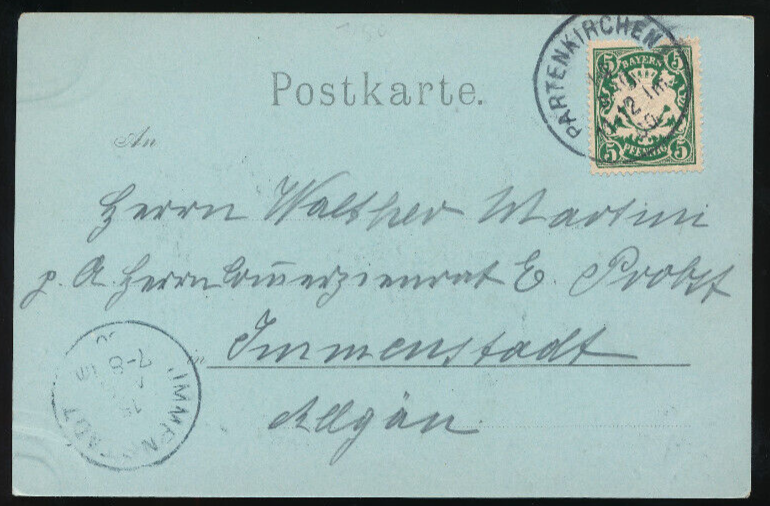 Postkarte.
PARTENKIRCHEN
5 BAYERN 5
5 PFENNIG 5
An
Herrn Walther Martini
p. A. Herrn Com̅erzienrat E. Probst
Immenstadt
Allgäu
IMMENSTADT
7-8